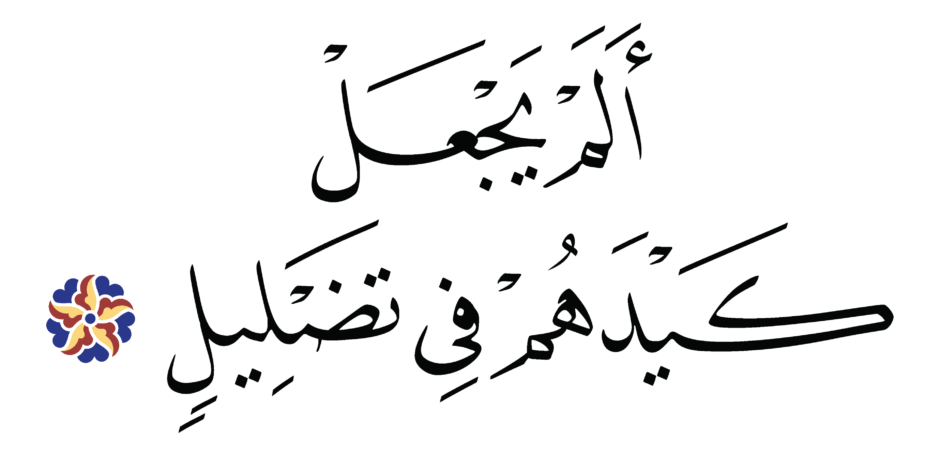 أَلَمْ يَجْعَلْ
كَيْدَهُمْ فِي تَضْلِيلٍ